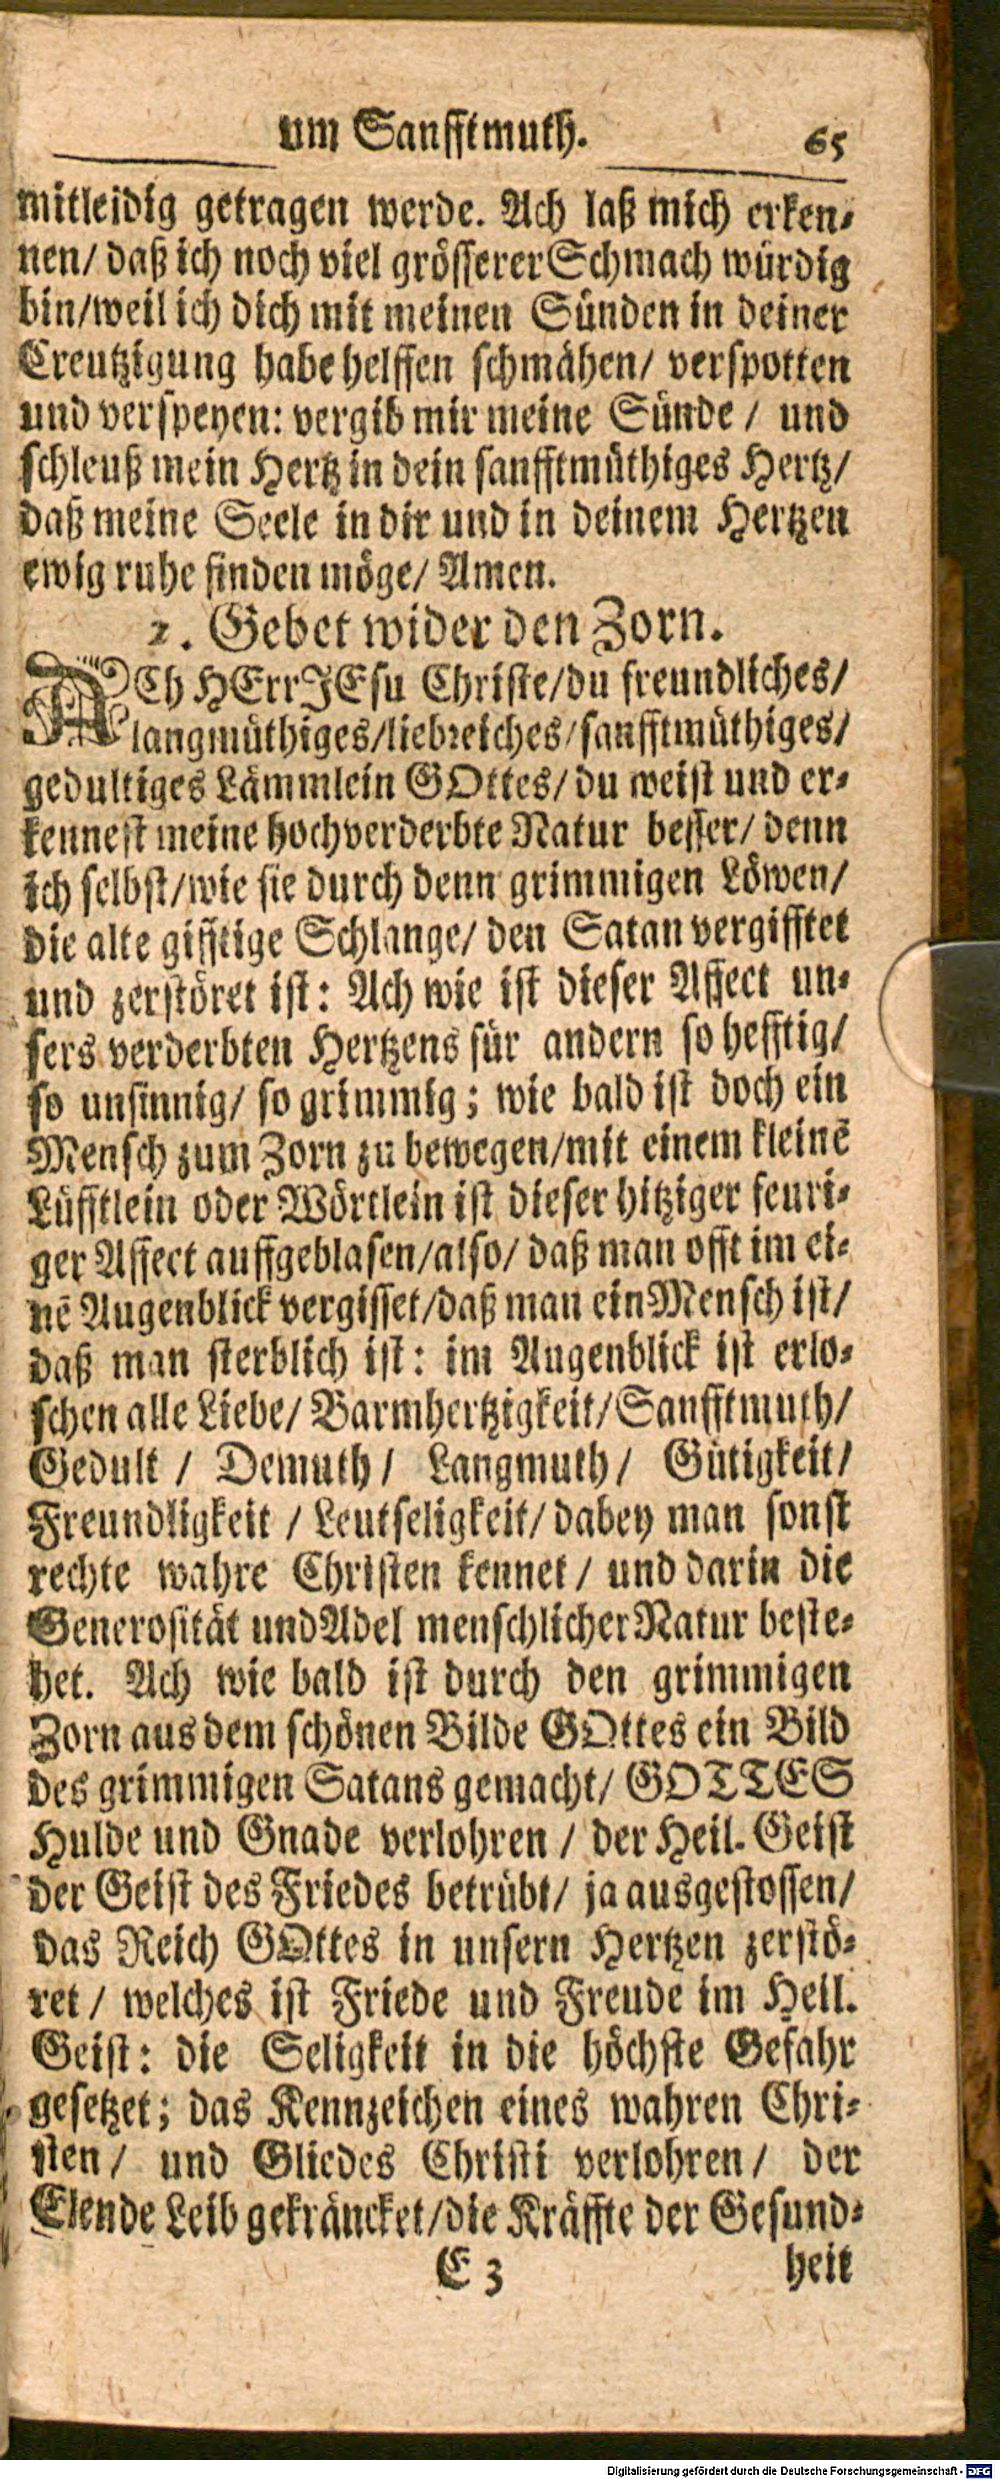 um Sanfftmuth. 65
mitleidig getragen werde. Ach laß mich erken-
nen/ daß ich noch viel grösserer Schmach würdig
bin/weil ich dich mit meinen Sünden in deiner
Creutzigung habe helffen schmähen/ verspotten
und verspeyen: vergib mir meine Sünde / und
schleuß mein Hertz in dein sanfftmüthiges Hertz/
daß meine Seele in dir und in deinem Hertzen
ewig ruhe finden möge/ Amen.
2. Gebet wider den Zorn.
ACh HErr JEsu Christe/du freundliches/
langmüthiges/liebreiches/sanfftmüthiges/
gedultiges Lämmlein GOttes/ du weist und er-
kennest meine hochverderbte Natur besser/ denn
ich selbst/wie sie durch denn grimmigen Löwen/
die alte gifftige Schlange/ den Satan vergifftet
und zerstöret ist: Ach wie ist dieser Affect un-
sers verderbten Hertzens für andern so hefftig/
so unsinnig/ so grimmig; wie bald ist doch ein
Mensch zum Zorn zu bewegen/mit einem kleinē
Lüfftlein oder Wörtlein ist dieser hitziger feuri-
ger Affect auffgeblasen/also/ daß man offt im ei-
nē Augenblick vergisset/daß man ein Mensch ist/
daß man sterblich ist: im Augenblick ist erlo-
schen alle Liebe/ Barmhertzigkeit/Sanfftmuth/
Gedult / Demuth/ Langmuth/ Gütigkeit/
Freundligkeit / Leutseligkeit/ dabey man sonst
rechte wahre Christen kennet / und darin die
Generosität und Adel menschlicher Natur beste-
het. Ach wie bald ist durch den grimmigen
Zorn aus dem schönen Bilde GOttes ein Bild
des grimmigen Satans gemacht/ GOTTES
Hulde und Gnade verlohren / der Heil. Geist
der Geist des Friedes betrübt/ ja ausgestossen/
das Reich GOttes in unsern Hertzen zerstö-
ret / welches ist Friede und Freude im Heil.
Geist: die Seligkeit in die höchste Gefahr
gesetzet; das Kennzeichen eines wahren Chri-
sten / und Gliedes Christi verlohren/ der
Elende Leib gekräncket/die Kräffte der Gesund-
E 3 heit
Digitalisierung gefördert durch die Deutsche Forschungsgemeinschaft - DFG